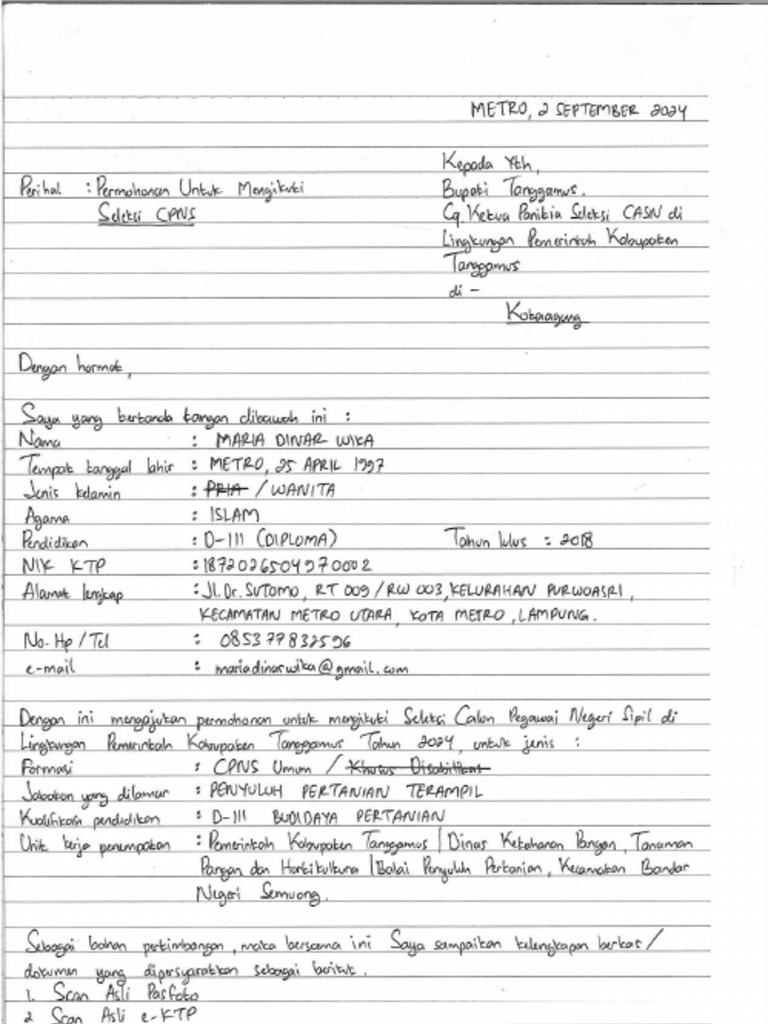 METRO, 2 SEPTEMBER 2024
Kepada Yth,
Perihal : Permohonan Untuk Mengikuti
Seleksi CPNS
Bupati Tanggamus.
Cq. Ketua Panitia Seleksi CASN di
Lingkungan Pemerintah Kabupaten
Tanggamus
di -
Kotaagung
Dengan hormat,
Saya yang bertanda tangan dibawah ini :
Nama : MARIA DINAR WIKA
Tempat tanggal lahir : METRO, 25 APRIL 1997
Jenis kelamin : PRIA / WANITA
Agama : ISLAM
Pendidikan : D-III (DIPLOMA) Tahun lulus : 2018
NIK KTP : 1872026504970002
Alamat lengkap : Jl. Dr. SUTOMO, RT 009 / RW 003, KELURAHAN PURWOASRI,
KECAMATAN METRO UTARA, KOTA METRO, LAMPUNG.
No. Hp / Tel : 085377832596
e-mail : mariadinarwika@gmail.com
Dengan ini mengajukan permohonan untuk mengikuti Seleksi Calon Pegawai Negeri Sipil di
Lingkungan Pemerintah Kabupaten Tanggamus Tahun 2024, untuk jenis :
Formasi : CPNS Umum / Khusus Disabilitas
Jabatan yang dilamar : PENYULUH PERTANIAN TERAMPIL
Kualifikasi pendidikan : D-III BUDIDAYA PERTANIAN
Unit kerja penempatan : Pemerintah Kabupaten Tanggamus | Dinas Ketahanan Pangan, Tanaman
Pangan dan Hortikultura | Balai Penyuluh Pertanian, Kecamatan Bandar
Negeri Semuong.
Sebagai bahan pertimbangan, maka bersama ini Saya sampaikan kelengkapan berkas /
dokumen yang dipersyaratkan sebagai berikut.
1. Scan Asli Pasfoto
2. Scan Asli e-KTP